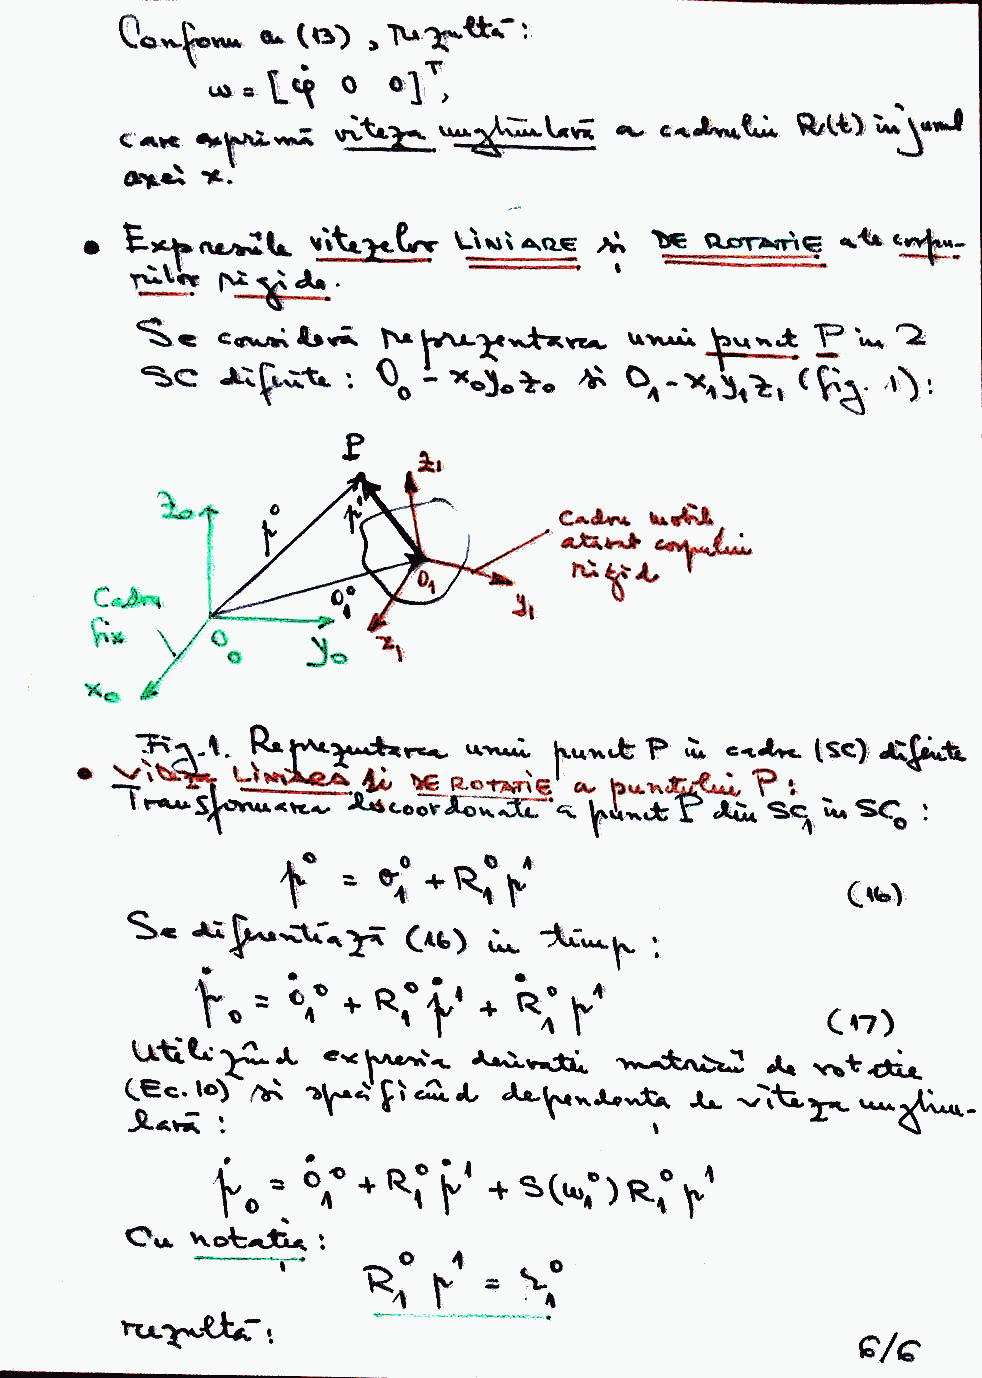 Conform cu (13), rezultă:
ω = [φ̇ 0 0]ᵀ,
care exprimă viteza unghiulară a cadrului R(t) in jurul
axei x.
• Expresiile vitezelor LINIARE si DE ROTATIE ale corpu-
rilor rigide.
Se consideră reprezentarea unui punct P in 2
SC diferite: O₀ - x₀y₀z₀ si O₁-x₁y₁z₁ (fig. 1):
P
z₁
z₀
p⁰
p¹
Cadru mobil,
atasat corpului
rigid
O₁
o₁⁰
y₁
Cadru
fix
O₀
y₀
x₁
x₀
Fig.1. Reprezentarea unui punct P in cadre (SC) diferite
• Viteza LINIARA si DE ROTATIE a punctului P:
Transformarea de coordonate a punct P din SC₁ in SC₀:
p⁰ = o₁⁰ + R₁⁰ p¹ (16)
Se diferentiază (16) in timp:
ṗ₀ = ȯ₁⁰ + R₁⁰ ṗ¹ + Ṙ₁⁰ p¹ (17)
Utilizând expresia derivatei matricii de rotatie
(Ec.10) si specificând dependenta de viteza unghiu-
lară:
ṗ₀ = ȯ₁⁰ + R₁⁰ ṗ¹ + S(ω₁⁰) R₁⁰ p¹
Cu notatia:
R₁⁰ p¹ = r₁⁰
rezultă:
6/6